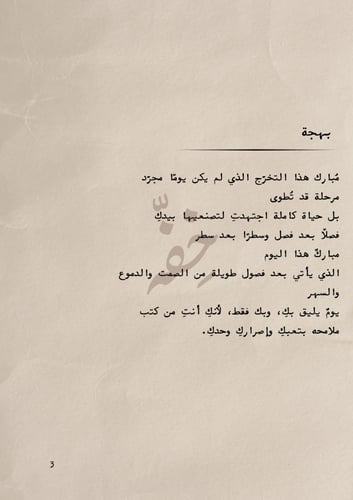 بهجة
مُبارك هذا التخرّج الذي لم يكن يومًا مجرّد
مرحلة قد تُطوى
بل حياة كاملة اجتهدتِ لتصنعيها بيدكِ
فصلًا بعد فصل وسطرًا بعد سطر
مباركٌ هذا اليوم
الذي يأتي بعد فصول طويلة من الصمت والدموع
والسهر
يومٌ يليق بكِ، وبك فقط، لأنكِ أنتِ من كتب
ملامحه بتعبكِ وإصراركِ وحدكِ.
خِفّة
3